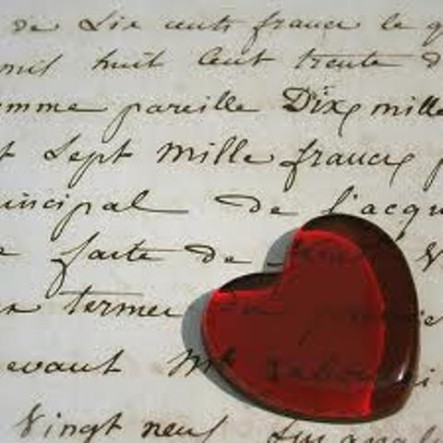 de Six cents francs le
mil huit Cent trente
somme pareille Dix mille
t Sept Mille francs
principal de l'acqu
faite de
termes
devant Me
Vingt neuf